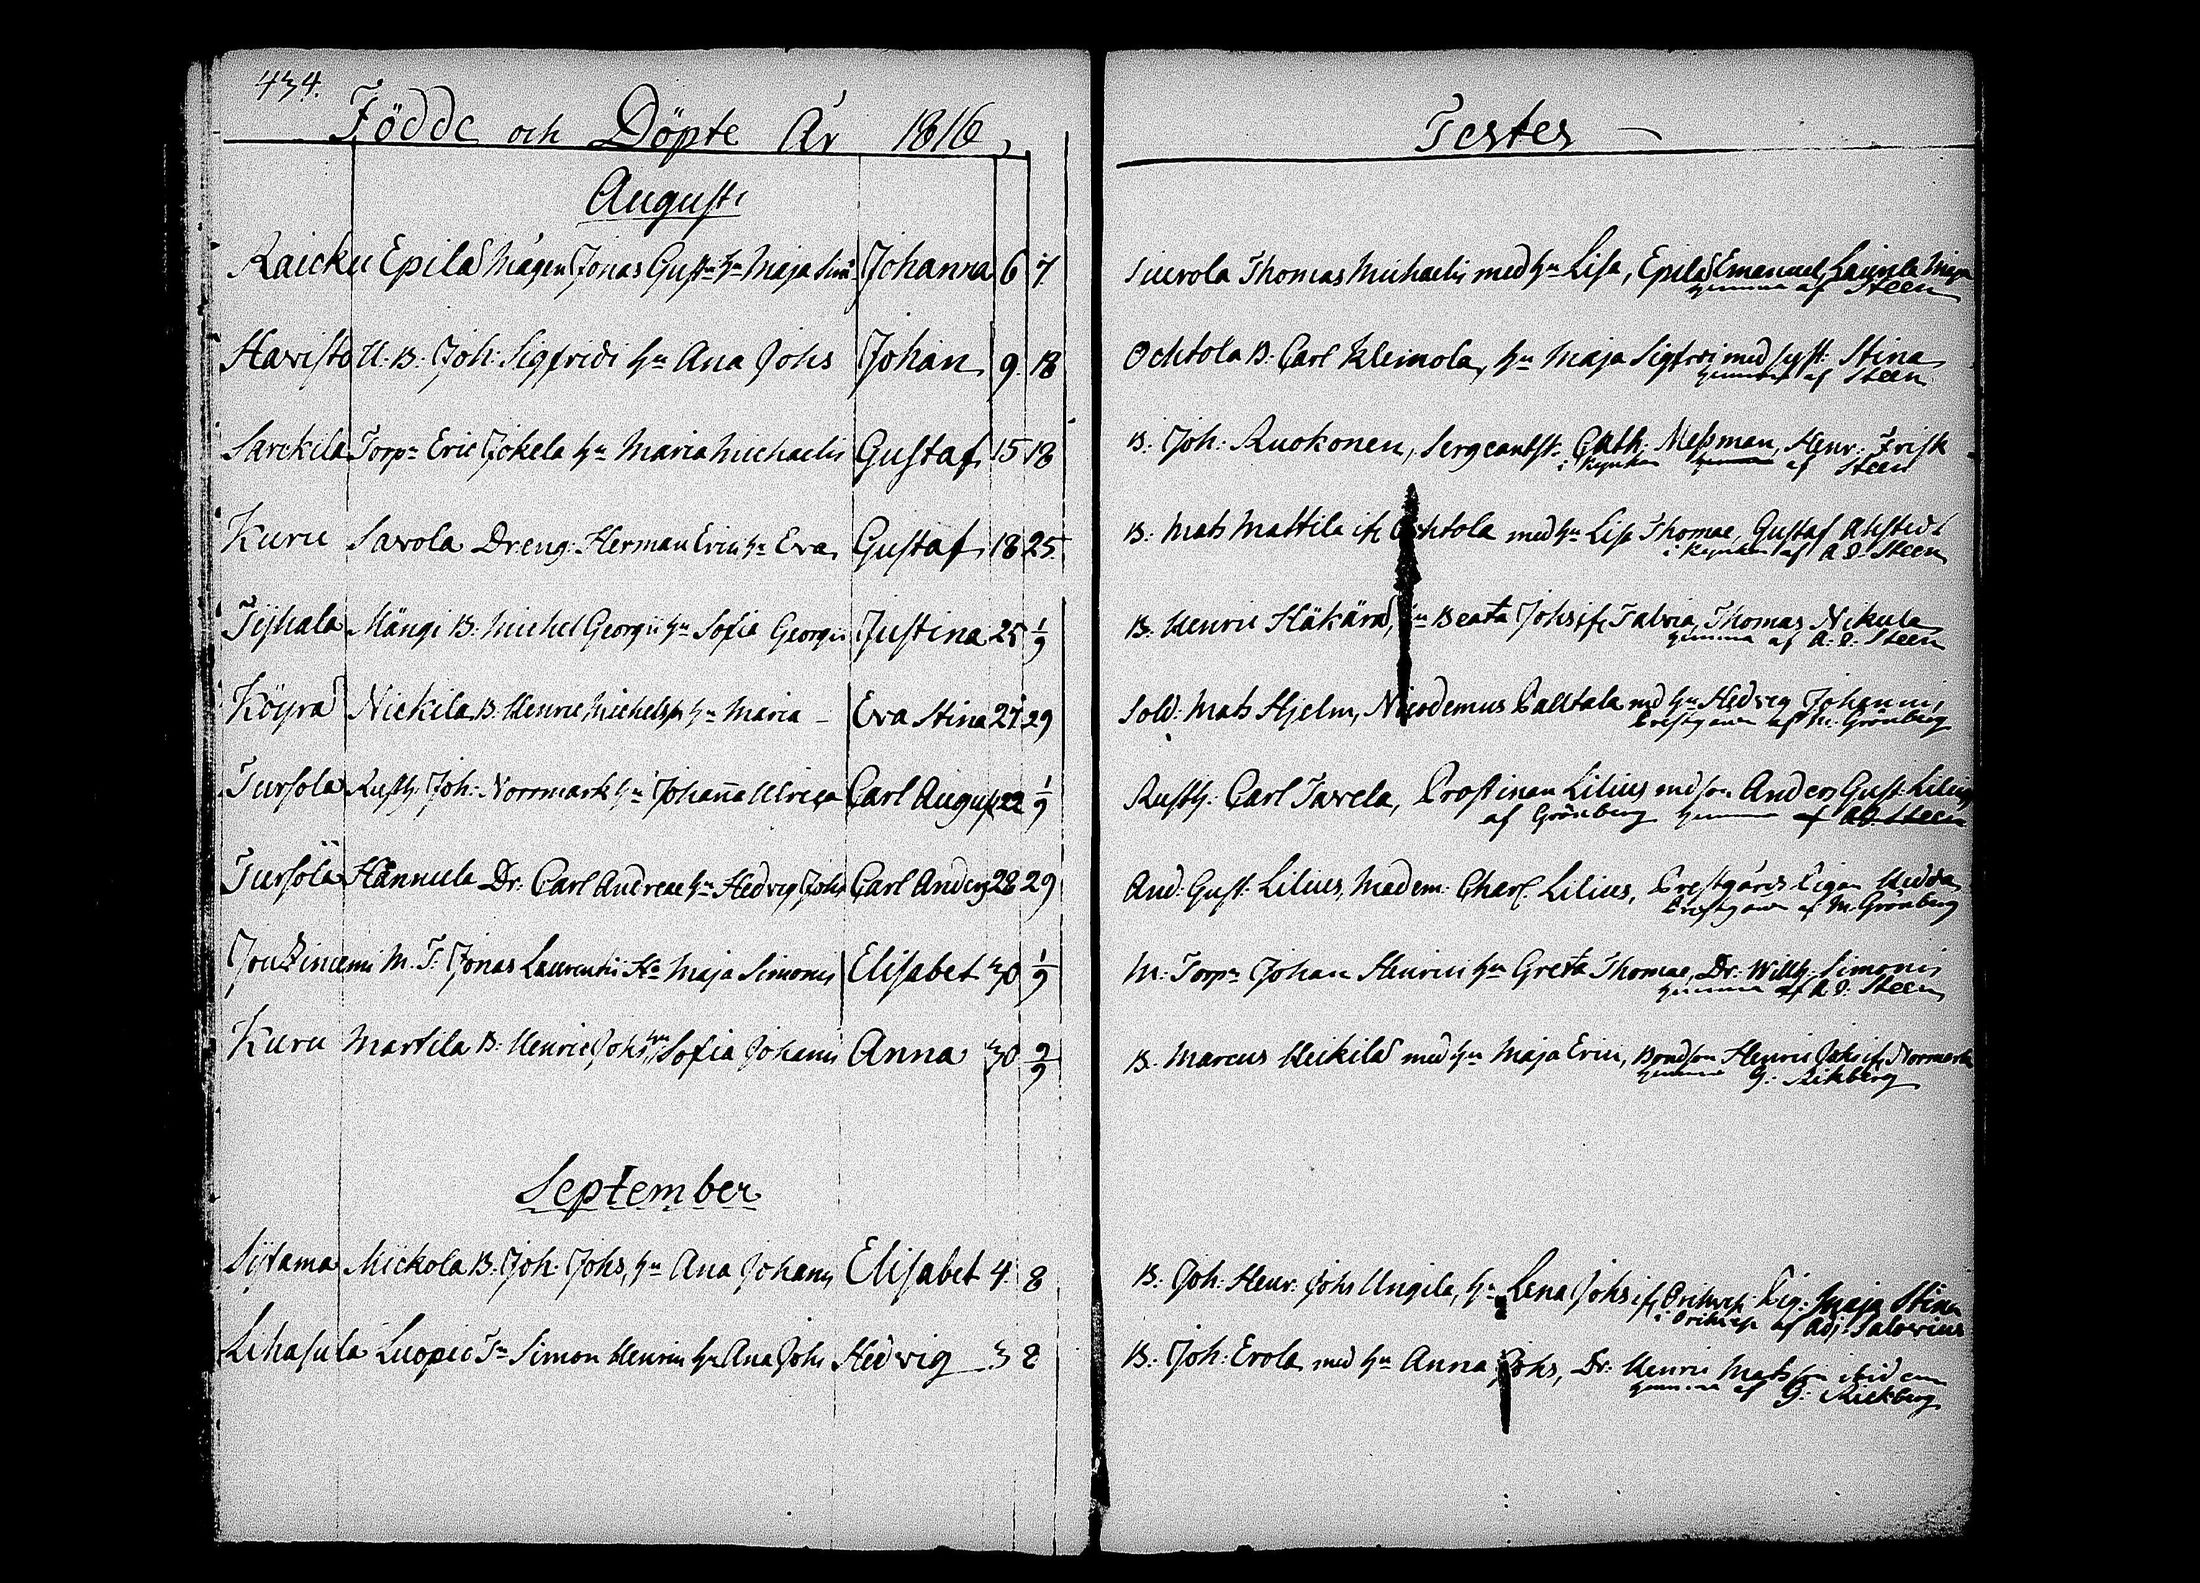 434.
Födde och Döpte År 1816,
Augusti
Raicku Epilä Mågen Jonas Gustn hu Maja Sim: Johanna 6 7.
Havisto U. B. Joh: Sigfridi hu Ana Johs Johan 9. 18
Sarckila Torpn Eric Jokela hu Maria Michaelis Gustaf 15 18
Kuru Savola Dreng: Herman Erici hu Eva Gustaf 18 25.
Tijhala Mängi B. Michel Georgii hu Sofia Georgii Justina 25 1/9
Köyrä Nickila B. Henric Michelss. hu Maria – Eva Stina 27 29
Tursola Rusth. Joh: Norrmark hu Johanna Ulrica Carl August 22 1/9
Tursola Hannula Dr: Carl Andreae hu Hedvig Johs Carl Anders 28 29
Jouzincemi M. T. Jonas Laurentii Hu Maja Simonis Elisabet 30 1/9
Kuru Martila B. Henric Johs hu Sofia Johanis Anna 30 9/9
September
Sijtama Mickola B. Joh: Johs, hu Ana Johanis Elisabet 4. 8
Lihasula Luopio Tn Simon Henrici hu Ana Johs Hedvig 3 8
Testes
Thomas Michaelis med hu Lisa, Epilä Emanuel, Laurila
hemma af Steen
Ochtola B. Carl Kleimola, hu Maja Sigfrei med syst. Stina
hemma af Steen
B. Joh: Ruokonen, Sergeantsk. Cath. Messman, Henr: Frisk
i Kyrkan hemma af Steen
B. Mats Mattila if. Ochtola med hu Lisa Thomae, Gustaf Ahlstedt
i Kyrkan af A. J. Steen
B. Henric Häkärä, hu Beata Johs if. Talvia, Thomas Nikula
hemma af A. J. Steen
Sold: Mats Hjelm, Nicodemus Palltala med hu Hedvig Johannis
Prestgården af M. Grönberg
Rusth: Carl Tavela, Prostinnan Lilius med son Anders Gust. Lilius
af Grönberg hemma af A. J. Steen
And: Gust: Lilius, Madem: Charl. Lilius, Prestgårds Pigan Hedda
Prestgården af M. Grönberg
M. Torpn Johan Henrici hu Greta Thomae, Dr: Willh: Simonis
hemma af A. J. Steen
B. Marcus Heikilä med hu Maja Erici, Bondson Henric Johs if. Norrmark
hemma G: Rikberg
B. Joh: Henr: Johs Ungila, hu Lena Johs if. Orihvesi Pig: Maja Stina
i Orihvesi af Adj: Salovius
B. Joh: Erola med hu Anna Johs, Dr: Henric Matsson ibidem
hemma af G: Rickberg